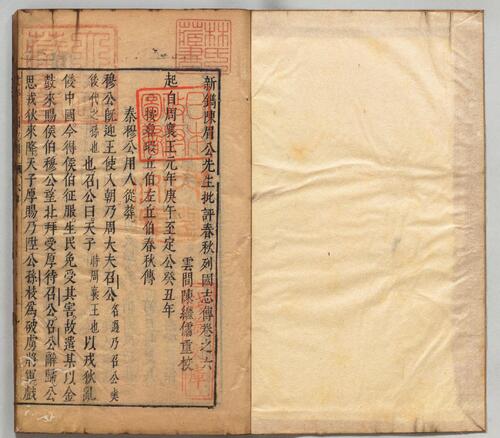 新鐫陳眉公先生批評春秋列國志傳卷之六
雲間陳繼儒重校
起自周襄王元年庚午至定公癸丑年
按魯瑕丘伯左丘伯春秋傳
秦穆公用人從葬
穆公既迎王使入朝乃周大夫召公名過乃召公奭
後代之孫也也召公曰天子時周襄王也以戎狄亂
侵中國今得侯伯征服生民免受其害故遣某以金
鼓來賜侯伯穆公望北拜受厚待召公召公辭歸公
思戎狄來降天子厚賜乃陞公孫枝為破虜將軍戲